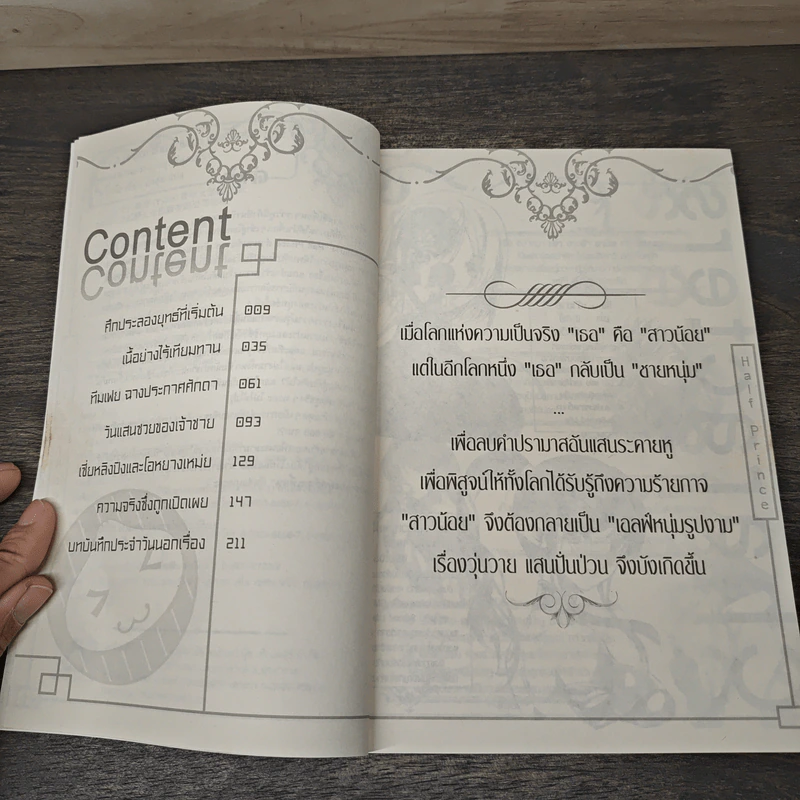 Content
ศึกประลองยุทธ์ที่เริ่มต้น 009
เนื้อย่างไร้เทียมทาน 035
ทีมเฟย ฉางประกาศศักดา 061
วันแสนซวยของเจ้าชาย 093
เซี่ยหลิงปิงและโอหยางเหม่ย 129
ความจริงซึ่งถูกเปิดเผย 147
บทบันทึกประจำวันนอกเรื่อง 211
เมื่อโลกแห่งความเป็นจริง "เธอ" คือ "สาวน้อย"
แต่ในอีกโลกหนึ่ง "เธอ" กลับเป็น "ชายหนุ่ม"
...
เพื่อลบคำปรามาสอันแสนระคายหู
เพื่อพิสูจน์ให้ทั้งโลกได้รับรู้ถึงความร้ายกาจ
"สาวน้อย" จึงต้องกลายเป็น "เอลฟ์หนุ่มรูปงาม"
เรื่องวุ่นวาย แสนปั่นป่วน จึงบังเกิดขึ้น
Half Prince